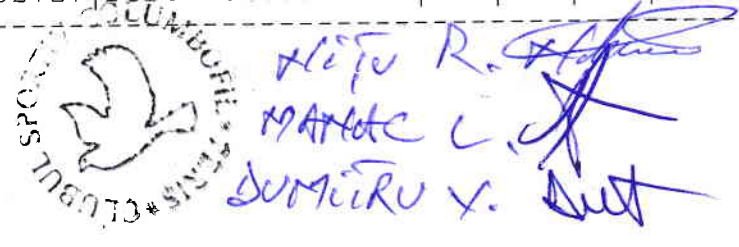 CLUBUL SPORTIV COLUMBOFIL * PERIS *
NIȚU R.
MANAC L.
DUMITRU V.